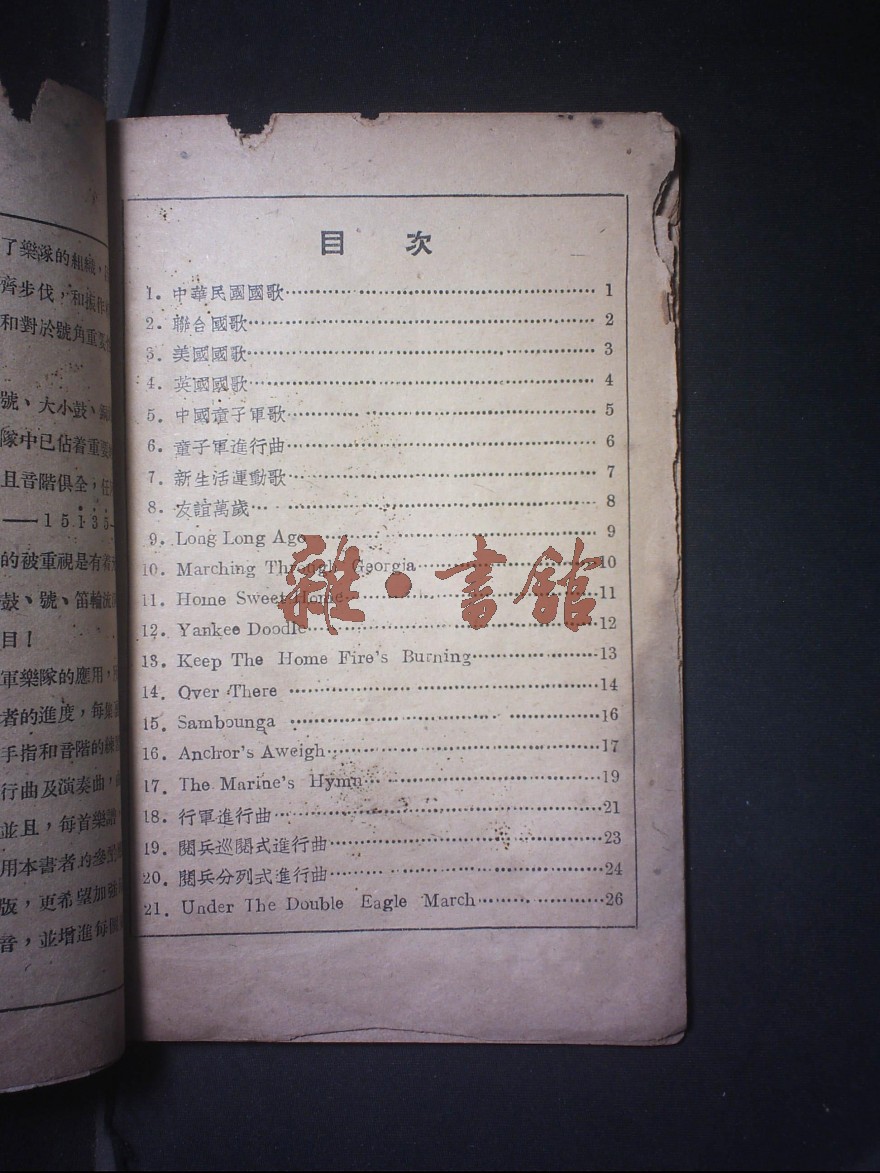 了樂隊的組織，
齊步伐，和振作
和對於號角重要
號、大小鼓、
隊中已佔着重要
且音階俱全，任
——15135—
的被重視是有着
鼓、號、笛輪流
目！
軍樂隊的應用，
者的進度，每集
手指和音階的練
行曲及演奏曲，
並且，每首樂譜
用本書者的參
版，更希望加強
音，並增進每個
目 次
1. 中華民國國歌 1
2. 聯合國歌 2
3. 美國國歌 3
4. 英國國歌 4
5. 中國童子軍歌 5
6. 童子軍進行曲 6
7. 新生活運動歌 7
8. 友誼萬歲 8
9. Long Long Ago 9
10. Marching Through Georgia 10
11. Home Sweet Home 11
12. Yankee Doodle 12
13. Keep The Home Fire's Burning 13
14. Over There 14
15. Sambounga 16
16. Anchor's Aweigh 17
17. The Marine's Hymn 19
18. 行軍進行曲 21
19. 閱兵巡閱式進行曲 23
20. 閱兵分列式進行曲 24
21. Under The Double Eagle March 26
雜·書館